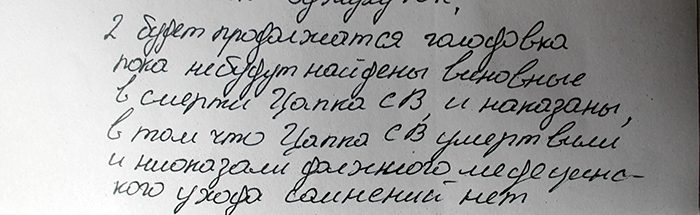 2 будет продолжатся голодовка
пока небудут найдены виновные
в смерти Цапка СВ, и наказаны,
в том что Цапка СВ, умертвили
и ниоказали должного медецинс-
кого ухода самнений нет